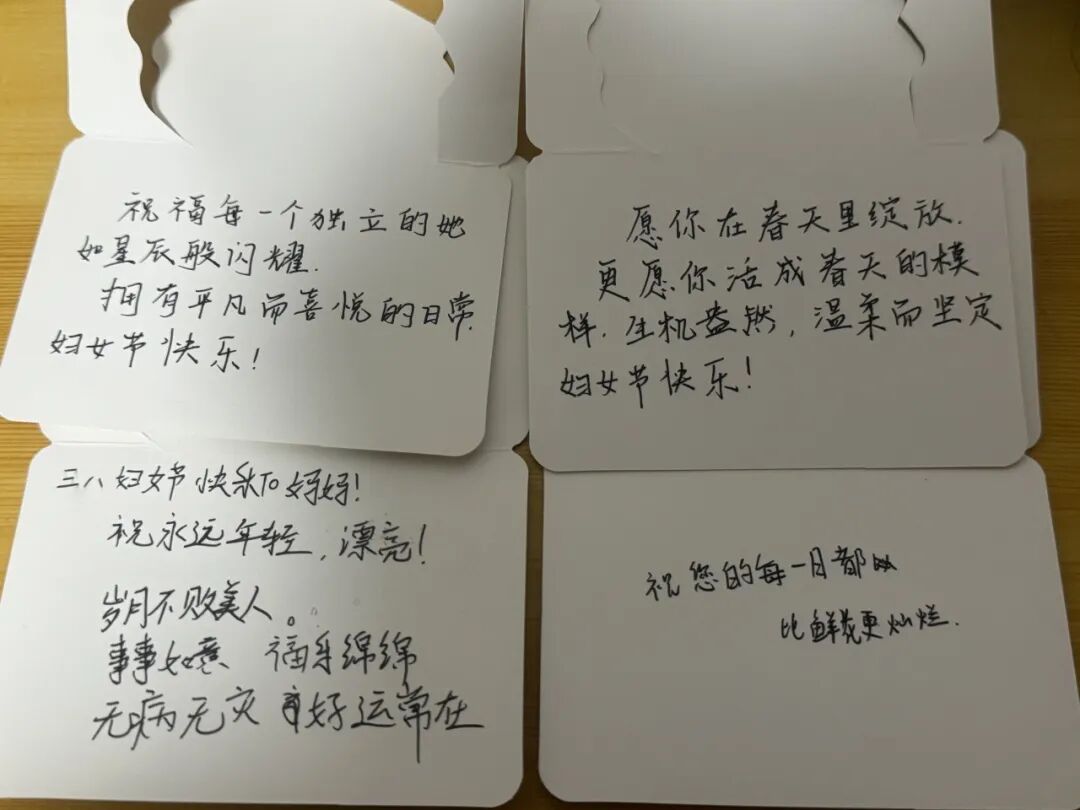 祝福每一个独立的她
如星辰般闪耀.
拥有平凡而喜悦的日常.
妇女节快乐!
愿你在春天里绽放.
更愿你活成春天的模
样.生机盎然,温柔而坚定
妇女节快乐!
三八妇女节快乐To妈妈!
祝永远年轻,漂亮!
岁月不败美人。
事事如意 福乐绵绵
无病无灾 好运常在
祝您的每一日都
比鲜花更灿烂.